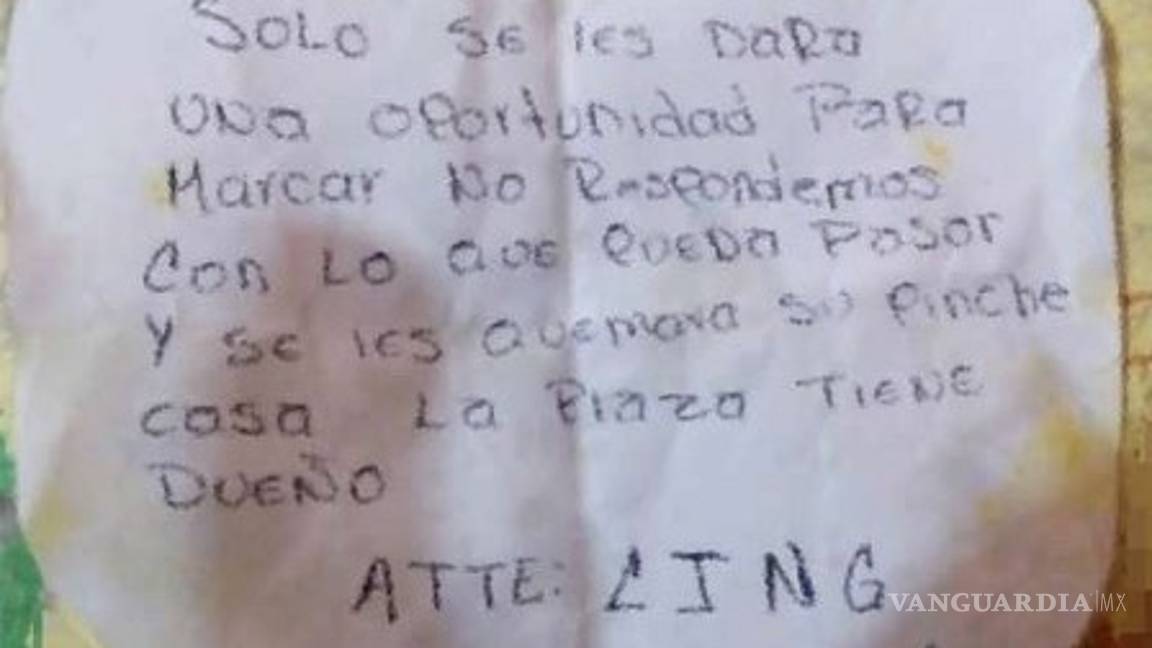 SOLO SE les DaRa
UNa oportunidad PaRa
Marcar No Respondemos
Con LO QUE PUEDa Pasar
Y SE les Quemara su Pinche
casa La Plaza TIENE
DUEÑO
ATTE: LING
VANGUARDIA|MX